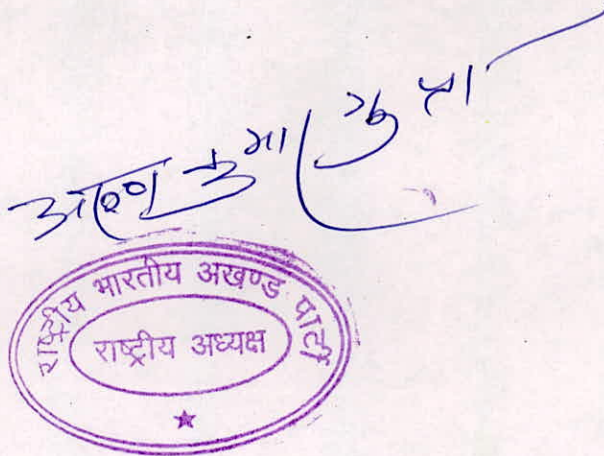 अरुण कुमार गुप्ता
राष्ट्रीय भारतीय अखण्ड पार्टी
राष्ट्रीय अध्यक्ष